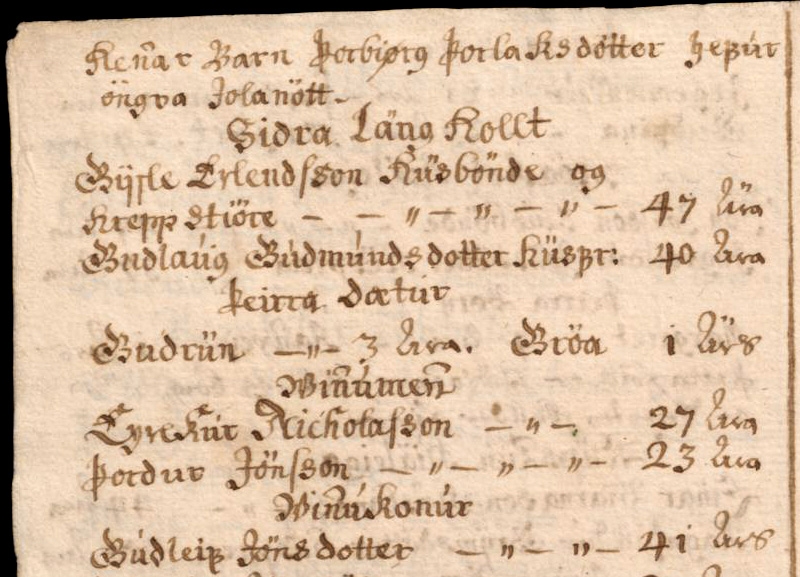 Hen̄ar Barn Þorbiørg Þorlaksdötter hefur
öngva Jolanött
Sidra Läng Hollt
Gijsle Erlendsson Hüsbönde og
Hreppstiöre — — „ — „ — „ — 47 ära
Gudlaúg Gúdmúndsdotter hüsfr: 40 ära
Þeirra dætur
Gudrün — „ — 3 ära. Gröa 1 ärs
Win̄úmen̄
Eyrekúr Nicholasson — „ — 27 ära
Þordur Jönsson — „ — „ — „ — 23 ära
Win̄úkonúr
Gúdleif Jönsdotter — „ — „ — 41 ärs